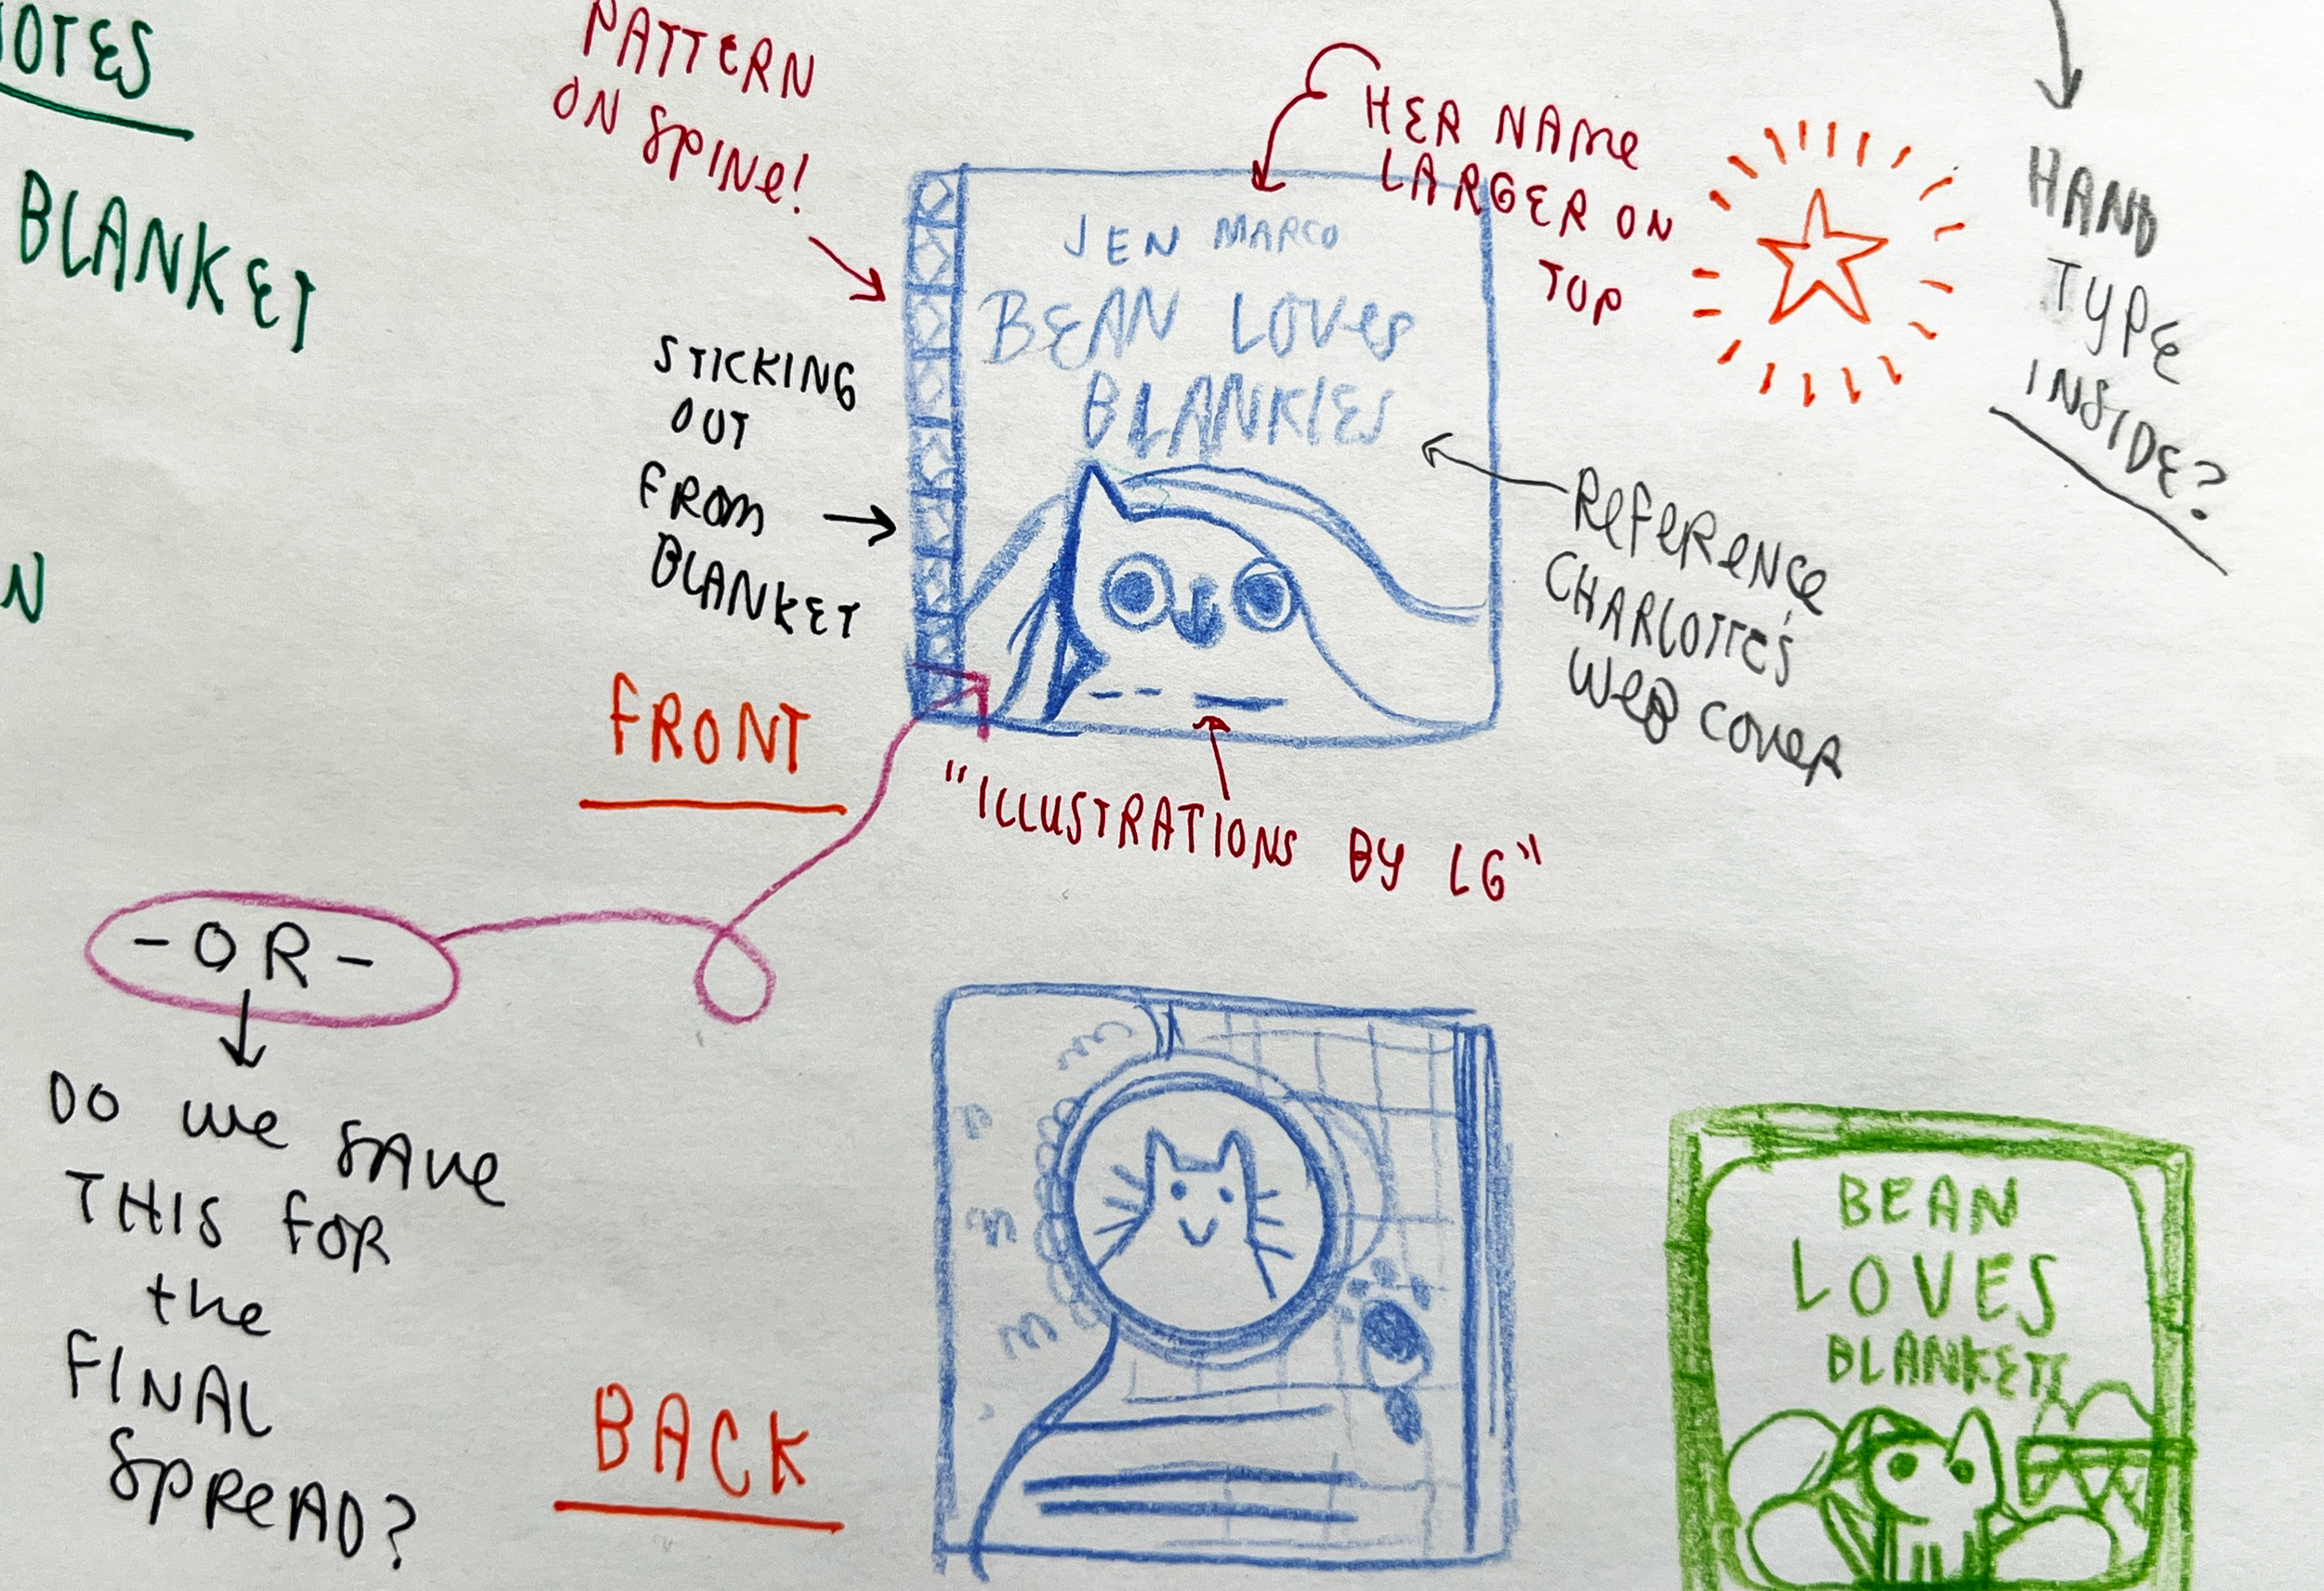 OTES
BLANKET
N
PATTERN
ON SPINE!
HER NAME
LARGER ON
TOP
HAND
TYPE
INSIDE?
JEN MARCO
BEAN LOVES
BLANKIES
STICKING
OUT
FROM
BLANKET
REFERENCE
CHARLOTTE'S
WEB COVER
FRONT
"ILLUSTRATIONS BY LG"
-OR-
DO WE SAVE
THIS FOR
the
FINAL
SPREAD?
BACK
BEAN
LOVES
BLANKETS